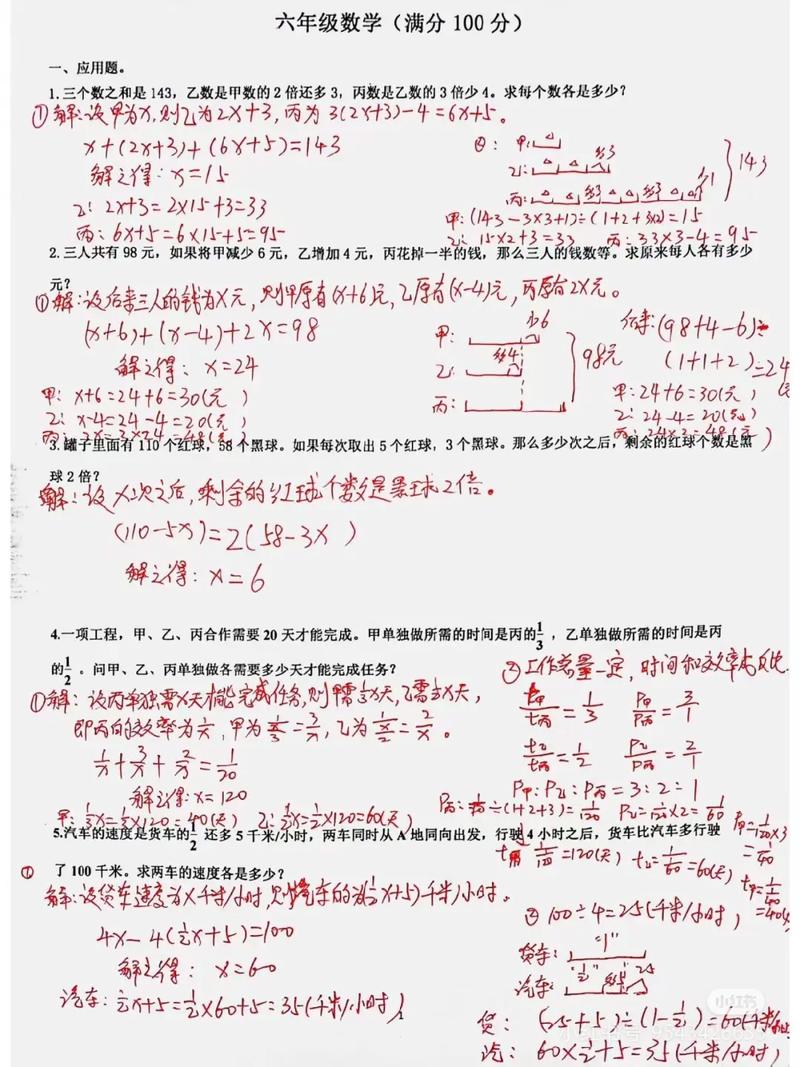 六年级数学（满分 100 分）
一、应用题。
1.三个数之和是 143，乙数是甲数的 2 倍还多 3，丙数是乙数的 3 倍少 4。求每个数各是多少？
①解：设甲为x，则乙为2x+3，丙为 3(2x+3)-4=6x+5。
x+(2x+3)+(6x+5)=143
解之得：x=15
乙：2x+3=2×15+3=33
丙：6x+5=6×15+5=95
②：甲：
乙： 多3
丙： 多3 多3 少1
143
甲：(143-3×3+1)÷(1+2+3×2)=15
乙：15×2+3=33 丙：33×3-4=95
2.三人共有 98 元，如果将甲减少 6 元，乙增加 4 元，丙花掉一半的钱，那么三人的钱数等。求原来每人各有多少
元？
①解：设后来三人的钱为x元，则甲原有(x+6)元，乙原有(x-4)元，丙原有2x元。
(x+6)+(x-4)+2x=98
解之得：x=24
甲：x+6=24+6=30(元)
乙：x-4=24-4=20(元)
丙：2x=2×24=48(元)
甲： 少6
乙： 多4
丙：
98元
后来：(98+4-6)÷
(1+1+2)=24
甲：24+6=30(元)
乙：24-4=20(元)
丙：24×2=48(元)
3.罐子里面有 110 个红球，58 个黑球。如果每次取出 5 个红球，3 个黑球。那么多少次之后，剩余的红球个数是黑
球 2 倍？
解：设x次之后，剩余的红球个数是黑球2倍。
(110-5x)=2(58-3x)
解之得：x=6
4.一项工程，甲、乙、丙合作需要 20 天才能完成。甲单独做所需的时间是丙的1/3，乙单独做所需的时间是丙
的1/2。问甲、乙、丙单独做各需要多少天才能完成任务？
①解：设丙单独需x天才能完成任务，则甲需1/3x天，乙需1/2x天，
即丙的效率为1/x，甲为1/(x/3)=3/x，乙为1/(x/2)=2/x。
1/x+3/x+2/x=1/20
解之得：x=120
甲：1/3x=1/3×120=40(天) 乙：1/2x=1/2×120=60(天)
②工作总量一定，时间和效率成反比
t甲/t丙=1/3 P甲/P丙=3/1
t乙/t丙=1/2 P乙/P丙=2/1
P甲：P乙：P丙=3：2：1
P丙=1/20÷(1+2+3)=1/120 P乙=1/120×2=1/60
P甲=1/120×3
=1/40
t乙=1/(1/60)=60(天)
5.汽车的速度是货车的1/2 还多 5 千米/小时，两车同时从 A 地同向出发，行驶 4 小时之后，货车比汽车多行驶
了 100 千米。求两车的速度各是多少？
①
解：设货车速度为x千米/小时，则汽车的为(1/2x+5)千米/小时。
4x-4(1/2x+5)=100
解之得：x=60
汽车：1/2x+5=1/2×60+5=35(千米/小时)
②100÷4=25(千米/小时)
货车： "1"
汽车： "1/2" 25
货：(25+5)÷(1-1/2)=60
汽：60×1/2+5=35(千米/小时)
小红书